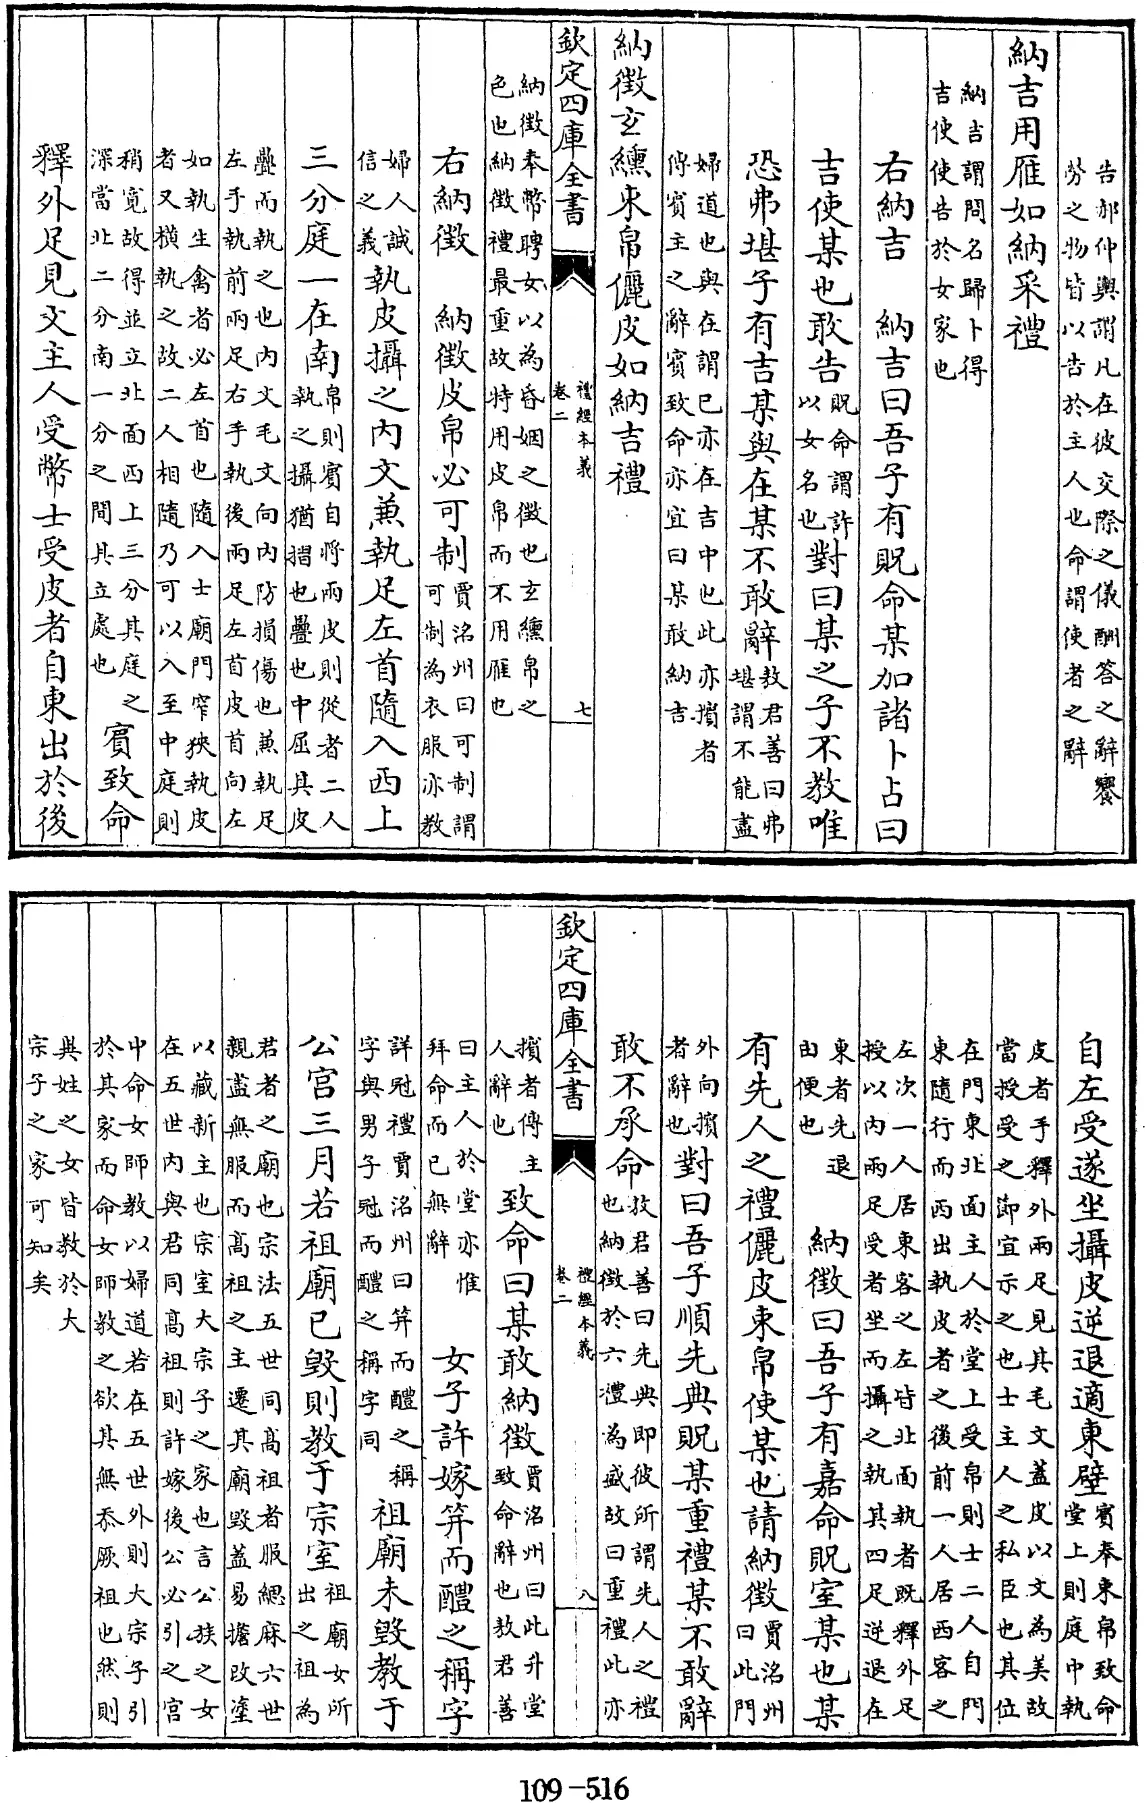 告郝仲輿謂凡在彼交際之儀酬答之辭饗
勞之物皆以告於主人也命謂使者之辭
納吉用雁如納采禮
納吉謂問名歸卜得
吉使使告於女家也
右納吉　納吉曰吾子有貺命某加諸卜占曰
吉使某也敢告貺命謂許以女名也對曰某之子不教唯
恐弗堪子有吉某與在某不敢辭敖君善曰弗堪謂不能盡
婦道也與在謂已亦在吉中也此亦擯者
傳賓主之辭賓致命亦宜曰某敢納吉
納徵玄纁束帛儷皮如納吉禮
欽定四庫全書　禮經本義　卷二　七
納徵奉幣聘女以為昏姻之徵也玄纁帛之
色也納徵禮最重故特用皮帛而不用雁也
右納徵　納徵皮帛必可制賈洺州曰可制謂可制為衣服亦教
婦人誠信之義執皮攝之內文兼執足左首隨入西上
三分庭一在南帛則賓自將兩皮則從者二人執之攝猶摺也疊也中屈其皮
疊而執之也內文毛文向內防損傷也兼執足
左手執前兩足右手執後兩足左首皮首向左
如執生禽者必左首也隨入士廟門窄狹執皮
者又橫執之故二人相隨乃可以入至中庭則
稍寬故得並立北面西上三分其庭之深當北二分南一分之間其立處也賓致命
釋外足見文主人受幣士受皮者自東出於後
自左受遂坐攝皮逆退適東壁賓奉束帛致命堂上則庭中執
皮者手釋外兩足見其毛文蓋皮以文為美故
當授受之節宜示之也士主人之私臣也其位
在門東北面主人於堂上受帛則士二人自門
東隨行而西出執皮者之後前一人居西客之
左次一人居東客之左皆北面執者既釋外足
授以內兩足受者坐而攝之執其四足逆退在
東者先退由便也　納徵曰吾子有嘉命貺室某也某
有先人之禮儷皮束帛使某也請納徵賈洺州曰此門
外向擯者辭也對曰吾子順先典貺某重禮某不敢辭
敢不承命敖君善曰先典即彼所謂先人之禮也納徵於六禮為盛故曰重禮此亦
欽定四庫全書　禮經本義　卷二　八
擯者傳主人辭也致命曰某敢納徵賈洺州曰此升堂致命辭也敖君善
曰主人於堂亦惟拜命而已無辭　女子許嫁笄而醴之稱字
詳冠禮賈洺州曰笄而醴之稱字與男子冠而醴之稱字同祖廟未毀教于
公宮三月若祖廟已毀則教于宗室祖廟女所出之祖為
君者之廟也宗法五世同高祖者服緦麻六世
親盡無服而高祖之主遷其廟毀蓋易擔改塗
以藏新主也宗室大宗子之家也言公族之女
在五世內與君同高祖則許嫁後公必引之宮
中命女師教以婦道若在五世外則大宗子引
於其家而命女師教之欲其無忝厥祖也然則
與姓之女皆教於大
宗子之家可知矣
109-516